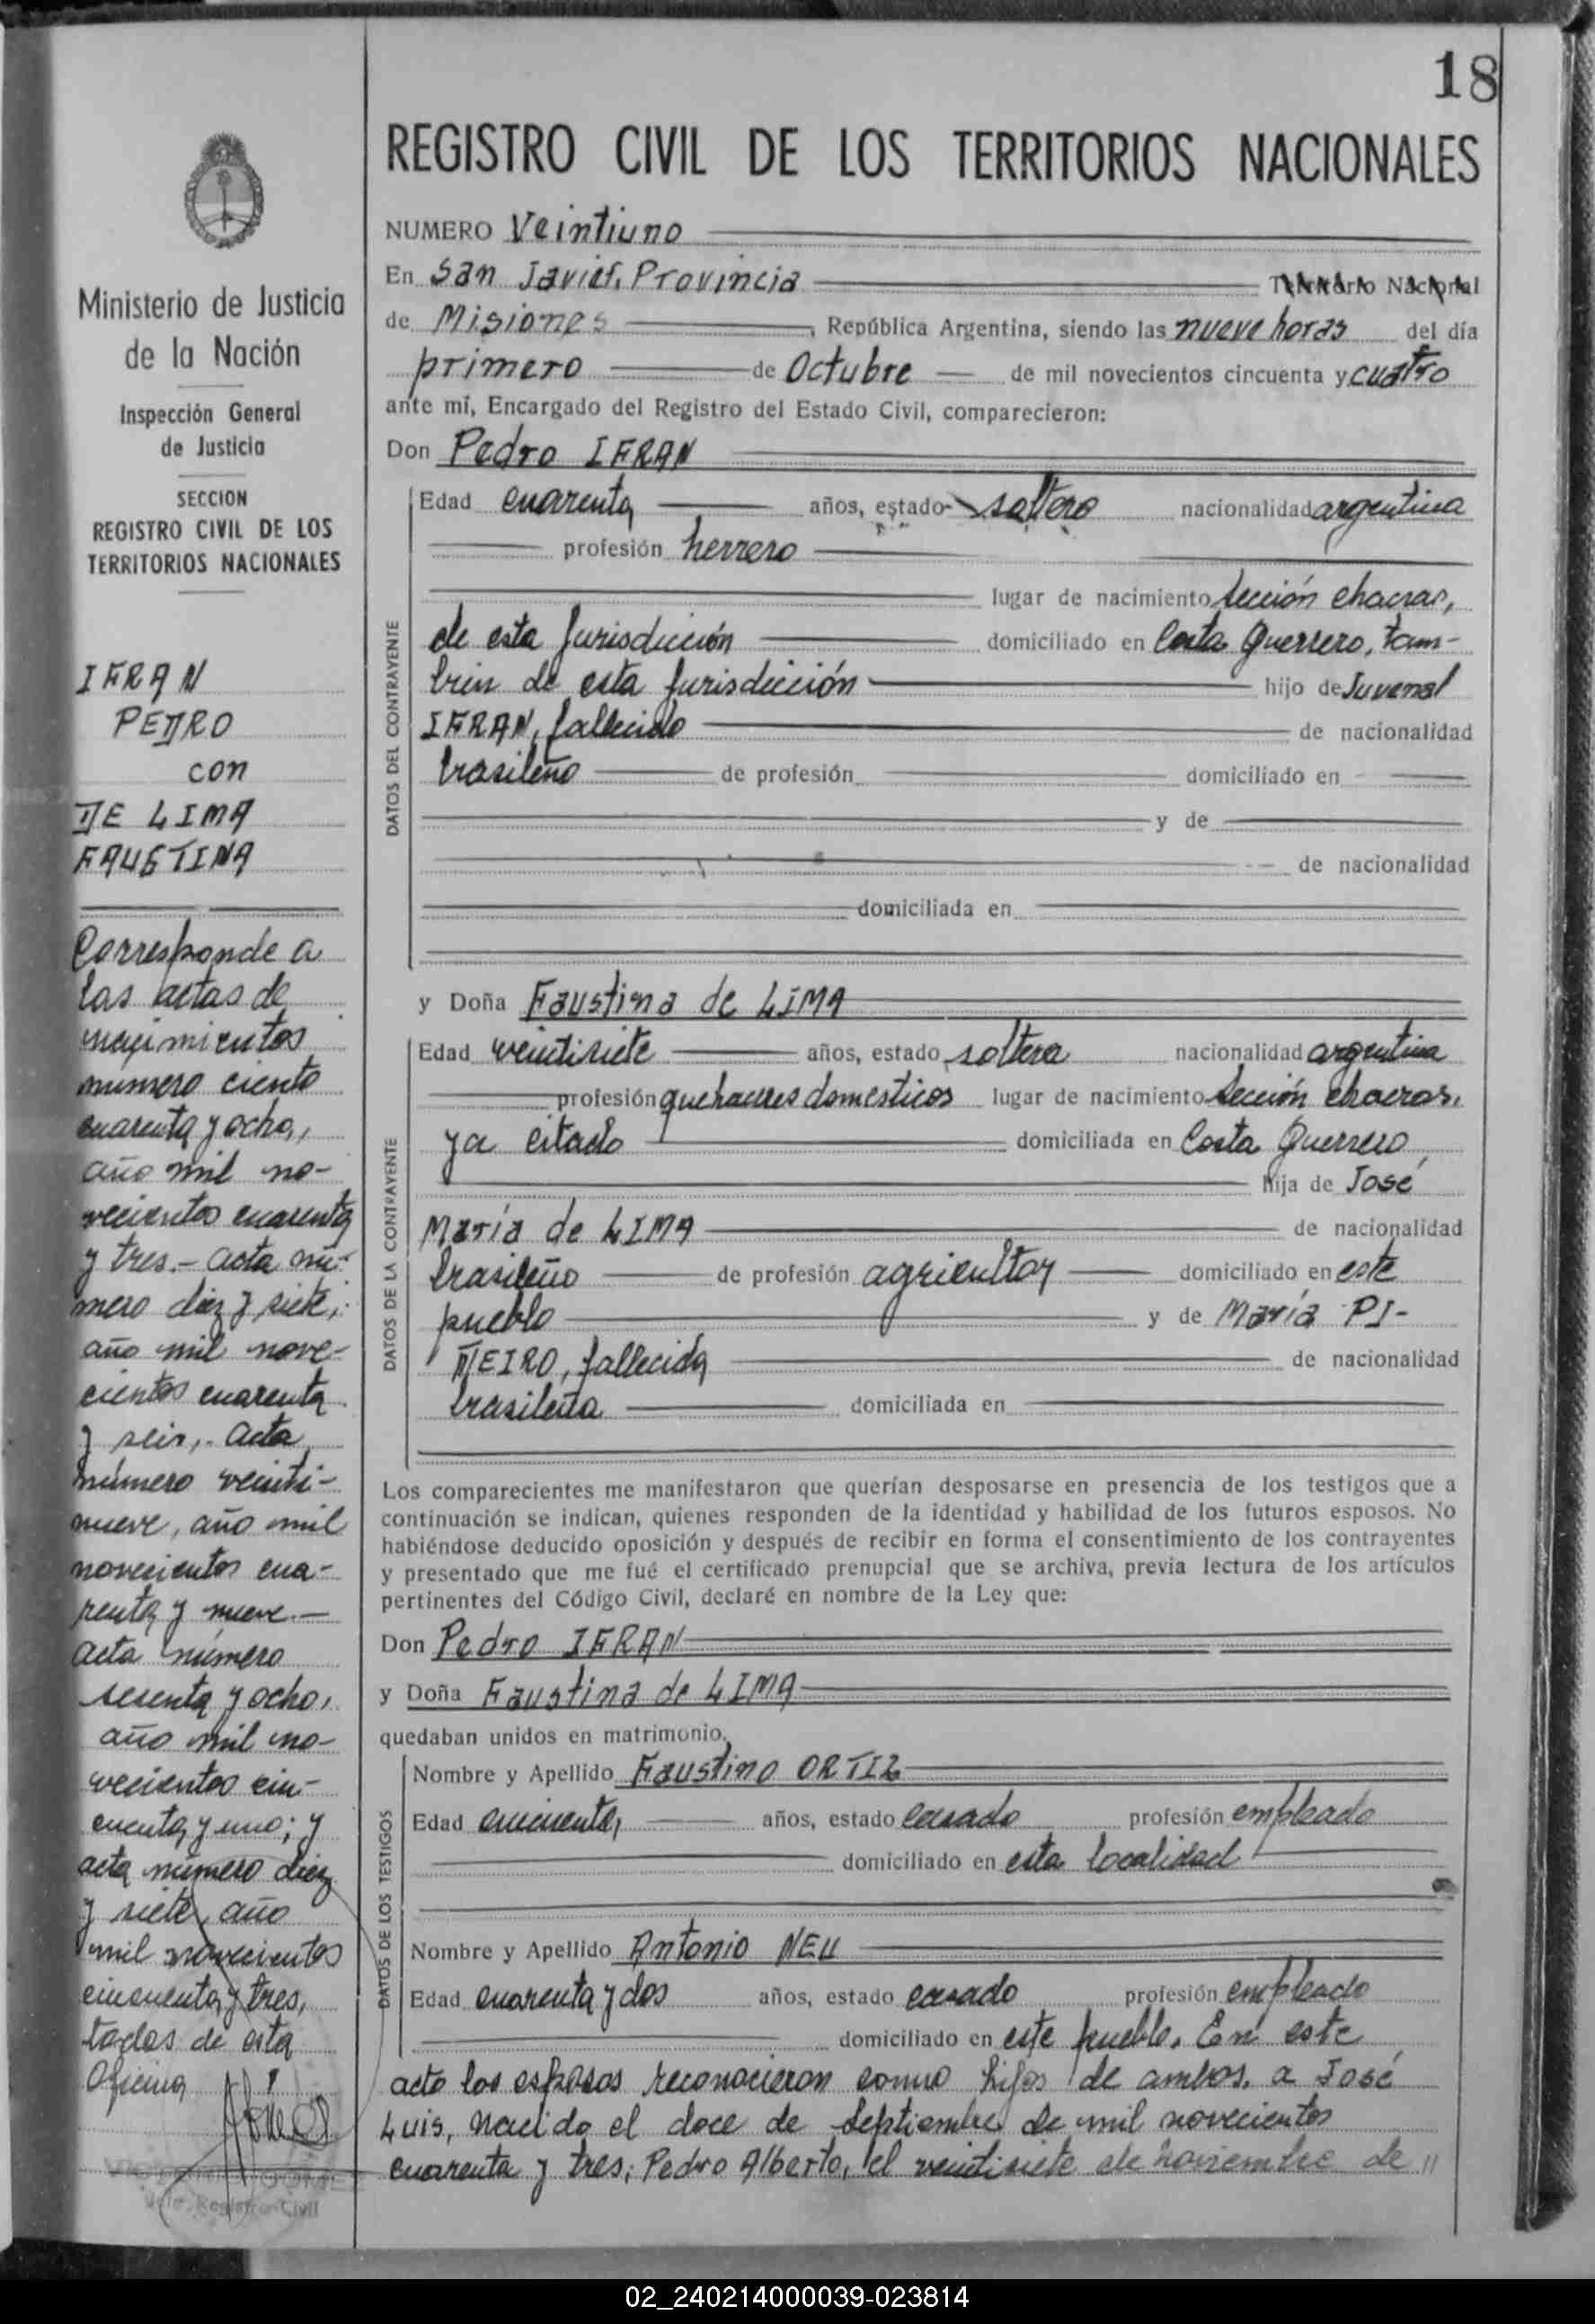 18
REGISTRO CIVIL DE LOS TERRITORIOS NACIONALES
Ministerio de Justicia
de la Nación
Inspección General
de Justicia
SECCION
REGISTRO CIVIL DE LOS
TERRITORIOS NACIONALES
IFRAN
PEDRO
con
DE LIMA
FAUSTINA
Corresponde a
las actas de
nacimientos
numero ciento
cuarenta y ocho,
año mil no-
vecientos cuarenta
y tres.- acta nú-
mero diez y siete,
año mil nove-
cientos cuarenta
y seis,. acta
número veinti-
nueve, año mil
novecientos cua-
renta y nueve.-
acta número
sesenta y ocho,
año mil no-
vecientos cin-
cuenta y uno; y
acta número diez
y siete, año
mil novecientos
cincuenta y tres,
todas de esta
Oficina
NUMERO Veintiuno
En San Javier, Provincia Territorio Nacional
de Misiones, República Argentina, siendo las nueve horas del día
primero de Octubre de mil novecientos cincuenta y cuatro
ante mí, Encargado del Registro del Estado Civil, comparecieron:
Don Pedro IFRAN
DATOS DEL CONTRAYENTE
Edad cuarenta años, estado soltero nacionalidad argentina
profesión herrero
lugar de nacimiento Sección chacras,
de esta Jurisdicción domiciliado en Costa Guerrero, tam-
bien de esta jurisdicción hijo de Juvenal
IFRAN, fallecido de nacionalidad
brasileño de profesión domiciliado en
y de
de nacionalidad
domiciliada en
y Doña Faustina de LIMA
DATOS DE LA CONTRAYENTE
Edad veintisiete años, estado soltera nacionalidad argentina
profesión quehaceres domesticos lugar de nacimiento Sección chacras,
ya citado domiciliada en Costa Guerrero,
hija de José
María de LIMA de nacionalidad
brasileño de profesión agricultor domiciliado en este
pueblo y de María PI-
ÑEIRO, fallecida de nacionalidad
brasileña domiciliada en
Los comparecientes me manifestaron que querían desposarse en presencia de los testigos que a
continuación se indican, quienes responden de la identidad y habilidad de los futuros esposos. No
habiéndose deducido oposición y después de recibir en forma el consentimiento de los contrayentes
y presentado que me fué el certificado prenupcial que se archiva, previa lectura de los artículos
pertinentes del Código Civil, declaré en nombre de la Ley que:
Don Pedro IFRAN
y Doña Faustina de LIMA
quedaban unidos en matrimonio.
DATOS DE LOS TESTIGOS
Nombre y Apellido Faustino ORTIZ
Edad cincuenta, años, estado casado profesión empleado
domiciliado en esta localidad
Nombre y Apellido Antonio NEU
Edad cuarenta y dos años, estado casado profesión empleado
domiciliado en este pueblo. En este
acto los esposos reconocieron como hijos de ambos, a José
Luis, nacido el doce de Septiembre de mil novecientos
cuarenta y tres; Pedro Alberto, el veintisiete de noviembre de //
Registro Civil
02_240214000039-023814